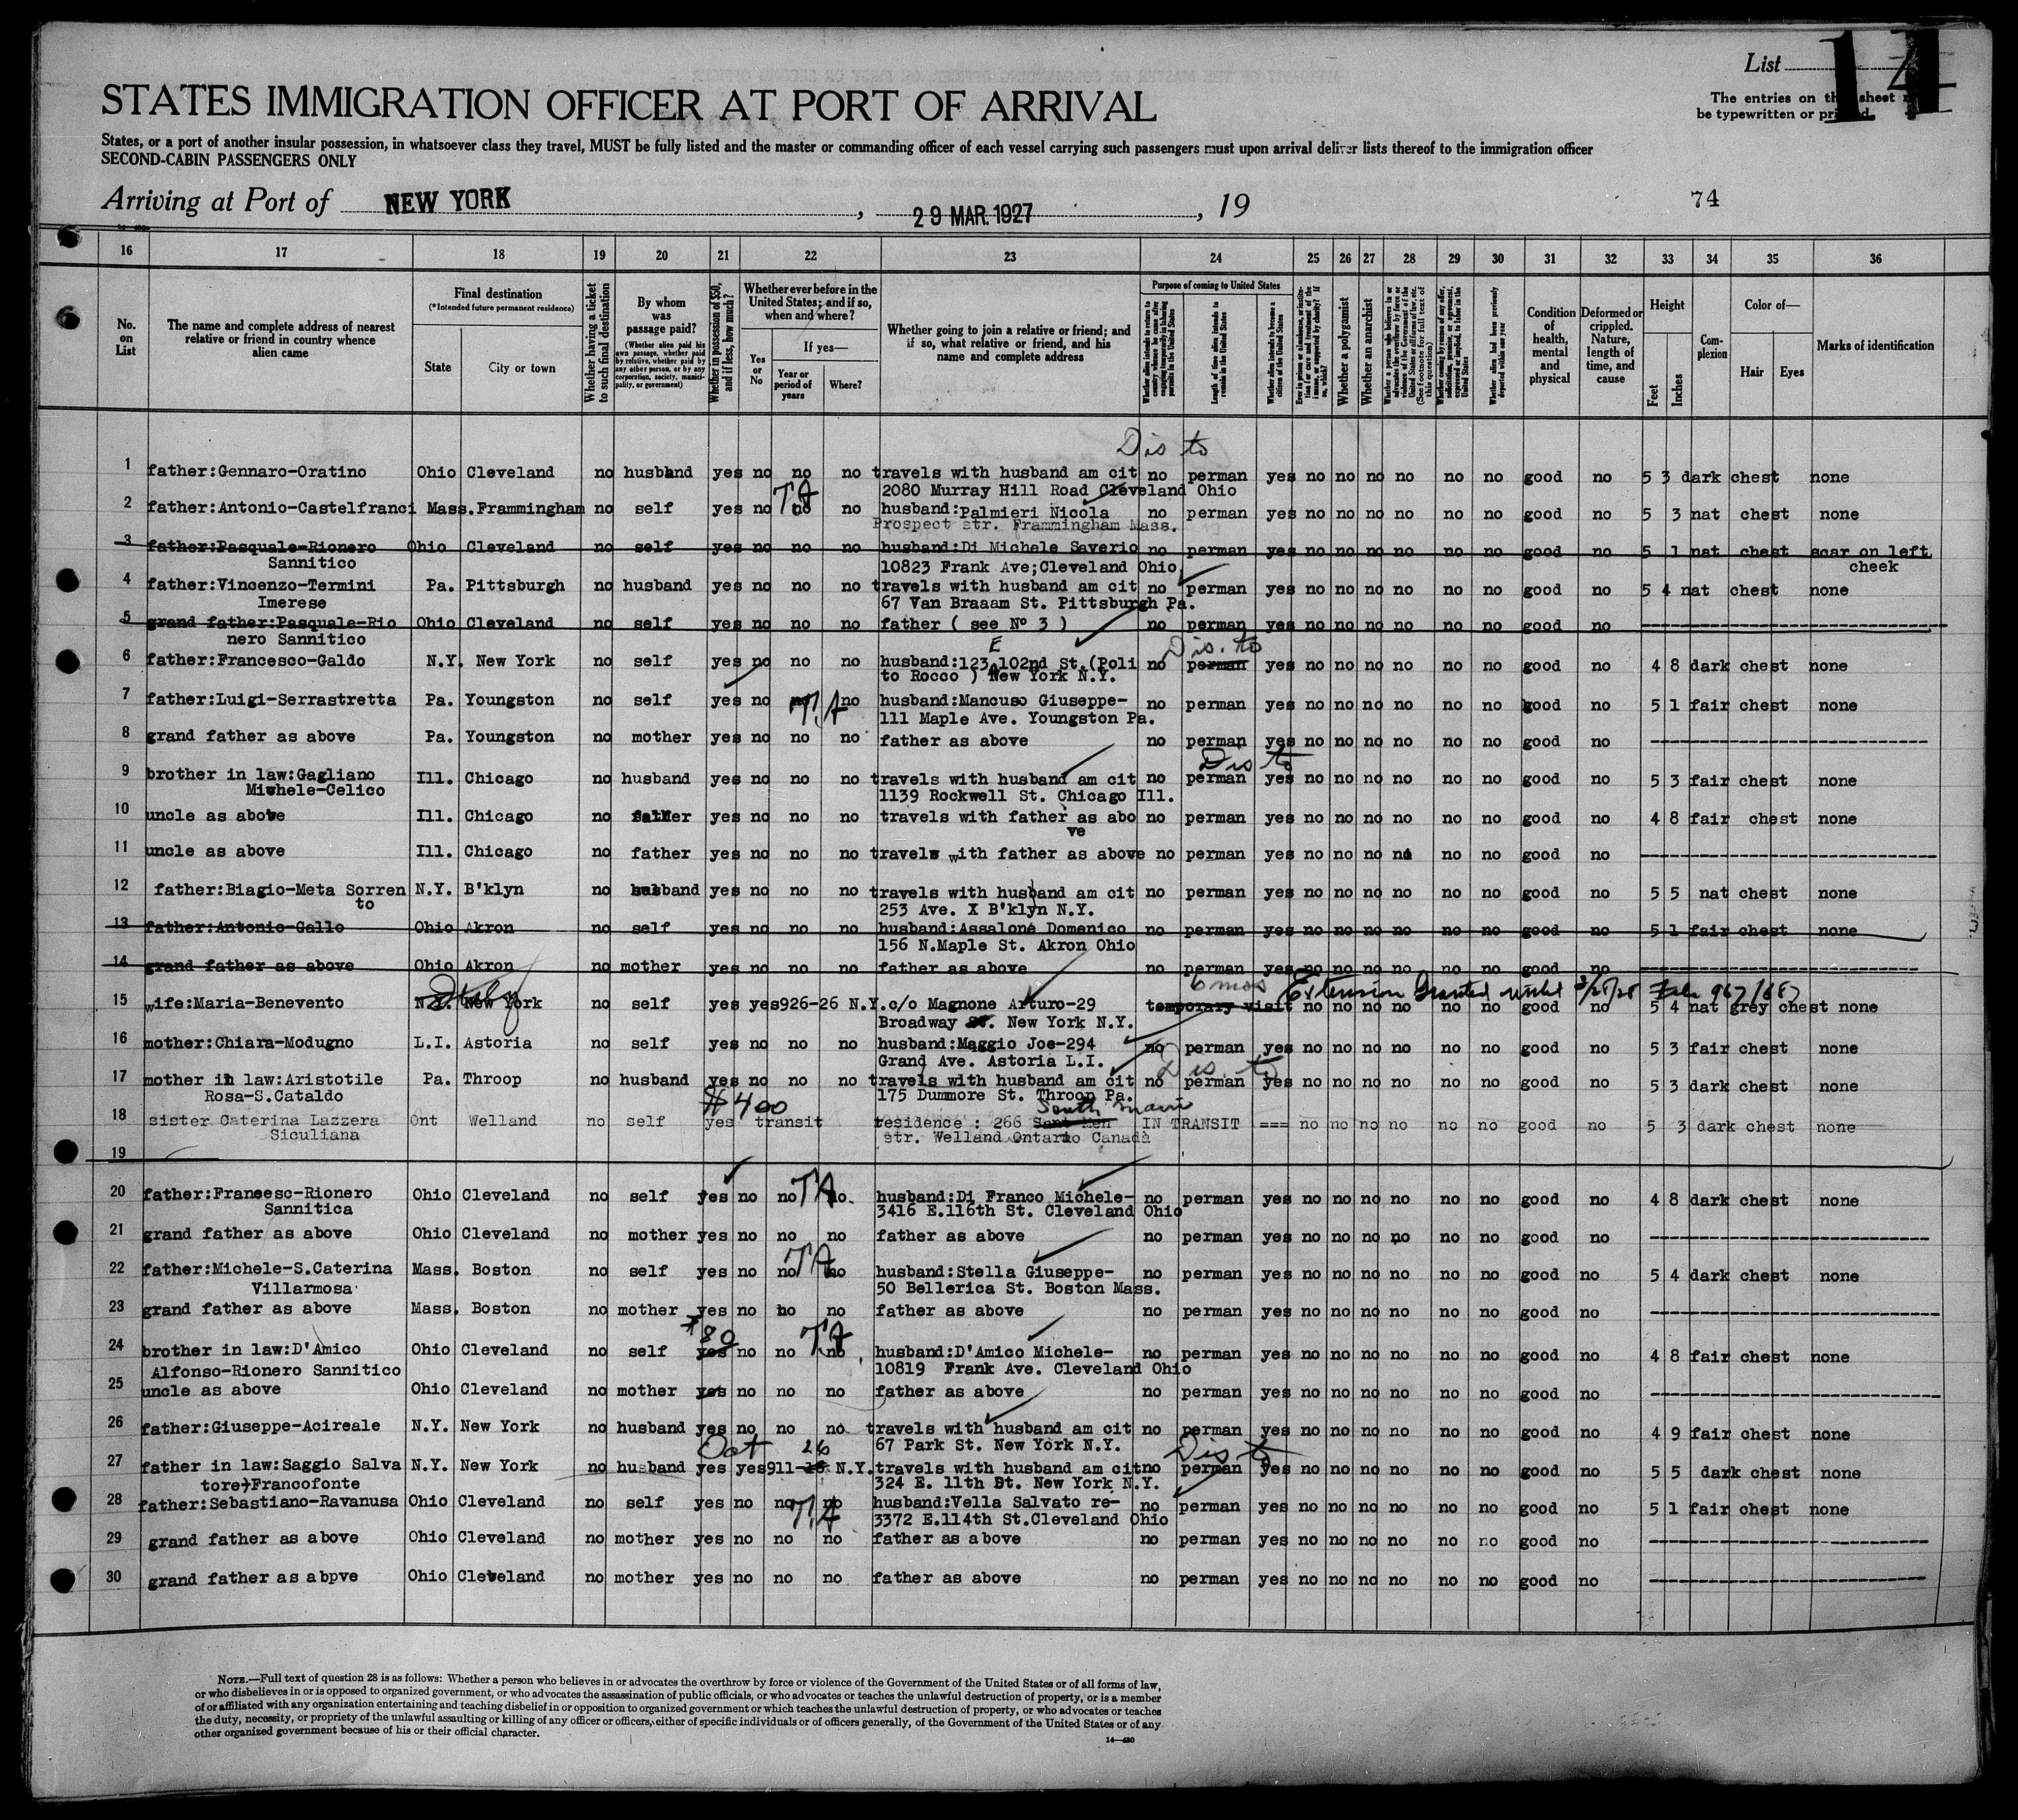 List 14
STATES IMMIGRATION OFFICER AT PORT OF ARRIVAL
The entries on this sheet
be typewritten or printed
States, or a port of another insular possession, in whatsoever class they travel, MUST be fully listed and the master or commanding officer of each vessel carrying such passengers must upon arrival deliver lists thereof to the immigration officer
SECOND-CABIN PASSENGERS ONLY
Arriving at Port of NEW YORK, 29 MAR. 1927, 19
74
16 17 18 19 20 21 22 23 24 25 26 27 28 29 30 31 32 33 34 35 36
No. on List
The name and complete address of nearest relative or friend in country whence alien came
Final destination
(*Intended future permanent residence)
State
City or town
Whether having a ticket to such final destination
By whom was passage paid?
(Whether alien paid his own passage, whether paid by relative, whether paid by any other person, or by any corporation, society, municipality, or government)
Whether in possession of $50, and if less, how much?
Whether ever before in the United States; and if so, when and where?
Yes or No
If yes—
Year or period of years
Where?
Whether going to join a relative or friend; and if so, what relative or friend, and his name and complete address
Purpose of coming to United States
Length of time alien intends to remain in the United States
Whether alien intends to become a citizen of the United States
Whether a polygamist
Whether an anarchist
Condition of health, mental and physical
Deformed or crippled. Nature, length of time, and cause
Height
Feet
Inches
Complexion
Color of—
Hair
Eyes
Marks of identification
Dis to
1 father:Gennaro-Oratino Ohio Cleveland no husband yes no no no travels with husband am cit no perman yes no no no no no no good no 5 3 dark chest none
2080 Murray Hill Road Cleveland Ohio
2 father:Antonio-Castelfranci Mass. Frammingham no self yes no TA no no husband:Palmieri Nicola no perman yes no no no no no no good no 5 3 nat chest none
Prospect str. Frammingham Mass.
3 father:Pasquale-Rionero Ohio Cleveland no self yes no no no husband:Di Michele Saverio no perman yes no no no no no no good no 5 1 nat chest scar on left
Sannitico 10823 Frank Ave;Cleveland Ohio cheek
4 father:Vincenzo-Termini Pa. Pittsburgh no husband yes no no no travels with husband am cit no perman yes no no no no no no good no 5 4 nat chest none
Imerese 67 Van Braaam St. Pittsburgh Pa.
5 grand father:Pasquale-Rio Ohio Cleveland no self yes no no no father ( see Nº 3 ) no perman yes no no no no no no good no
nero Sannitico
6 father:Francesco-Galdo N.Y. New York no self yes no no no husband:123 E 102nd St.(Poli no Dis. to perman yes no no no no no no good no 4 8 dark chest none
to Rocco ) New York N.Y.
7 father:Luigi-Serrastretta Pa. Youngston no self yes no T.A no no husband:Mancuso Giuseppe- no perman yes no no no no no no good no 5 1 fair chest none
111 Maple Ave. Youngston Pa.
8 grand father as above Pa. Youngston no mother yes no no no father as above no perman yes no no no no no no good no
Dis to
9 brother in law:Gagliano Ill. Chicago no husband yes no no no travels with husband am cit no perman yes no no no no no no good no 5 3 fair chest none
Michele-Celico 1139 Rockwell St. Chicago Ill.
10 uncle as above Ill. Chicago no father yes no no no travels with father as abo no perman yes no no no no no no good no 4 8 fair chest none
ve
11 uncle as above Ill. Chicago no father yes no no no travels with father as above no perman yes no no no no no no good no
12 father:Biagio-Meta Sorren N.Y. B'klyn no husband yes no no no travels with husband am cit no perman yes no no no no no no good no 5 5 nat chest none
to 253 Ave. X B'klyn N.Y.
13 father:Antonio-Gallo Ohio Akron no self yes no no no husband:Assalone Domenico no perman yes no no no no no no good no 5 1 fair chest none
156 N.Maple St. Akron Ohio
14 grand father as above Ohio Akron no mother yes no no no father as above no perman yes no no no no no no good no
6 mos Extension Granted until 3/28/28 File 967/687
15 wife:Maria-Benevento N.Y. New York Italy no self yes yes 926-26 N.Y. c/o Magnone Arturo-29 temporary visit no no no no no no good no 5 4 nat grey chest none
Broadway St. New York N.Y.
16 mother:Chiara-Modugno L.I. Astoria no self yes no no no husband:Maggio Joe-294 no perman yes no no no no no no good no 5 3 fair chest none
Grand Ave. Astoria L.I.
Dis. to
17 mother in law:Aristotile Pa. Throop no husband yes no no no travels with husband am cit no perman yes no no no no no no good no 5 3 dark chest none
Rosa-S.Cataldo 175 Dummore St. Throop Pa.
$400 South main
18 sister Caterina Lazzera Ont Welland no self yes transit residence : 266 Sant Men IN TRANSIT === no no no no no no good no 5 3 dark chest none
Siculiana str. Welland Ontario Canadà
19
20 father:Francesc-Rionero Ohio Cleveland no self yes no no TA no. husband:Di Franco Michele- no perman yes no no no no no no good no 4 8 dark chest none
Sannitica 3416 E.116th St. Cleveland Ohio
21 grand father as above Ohio Cleveland no mother yes no no no father as above no perman yes no no no no no no good no
22 father:Michele-S.Caterina Mass. Boston no self yes no no TA no husband:Stella Giuseppe- no perman yes no no no no no no good no 5 4 dark chest none
Villarmosa 50 Bellerica St. Boston Mass.
23 grand father as above Mass. Boston no mother yes no no no father as above no perman yes no no no no no no good no
$80
24 brother in law:D'Amico Ohio Cleveland no self yes no no T.A no husband:D'Amico Michele- no perman yes no no no no no no good no 4 8 fair chest none
Alfonso-Rionero Sannitico 10819 Frank Ave. Cleveland Ohio
25 uncle as above Ohio Cleveland no mother yes no no no father as above no perman yes no no no no no no good no
26 father:Giuseppe-Acireale N.Y. New York no husband yes no no no travels with husband am cit no perman yes no no no no no no good no 4 9 fair chest none
67 Park St. New York N.Y.
Oct 26 Dis to
27 father in law:Saggio Salva N.Y. New York no husband yes yes 911- N.Y. travels with husband am cit no perman yes no no no no no no good no 5 5 dark chest none
tore)Francofonte 324 E. 11th St. New York N.Y.
28 father:Sebastiano-Ravanusa Ohio Cleveland no self yes no no T.A no husband:Vella Salvato re- no perman yes no no no no no no good no 5 1 fair chest none
3372 E.114th St.Cleveland Ohio
29 grand father as above Ohio Cleveland no mother yes no no no father as above no perman yes no no no no no no good no
30 grand father as abpve Ohio Cleveland no mother yes no no no father as above no perman yes no no no no no no good no
NOTE.—Full text of question 28 is as follows: Whether a person who believes in or advocates the overthrow by force or violence of the Government of the United States or of all forms of law,
or who disbelieves in or is opposed to organized government, or who advocates the assassination of public officials, or who advocates or teaches the unlawful destruction of property, or is a member
of or affiliated with any organization entertaining and teaching disbelief in or opposition to organized government or which teaches the unlawful destruction of property, or who advocates or teaches
the duty, necessity, or propriety of the unlawful assaulting or killing of any officer or officers, either of specific individuals or of officers generally, of the Government of the United States or of any
other organized government because of his or their official character.
14—430